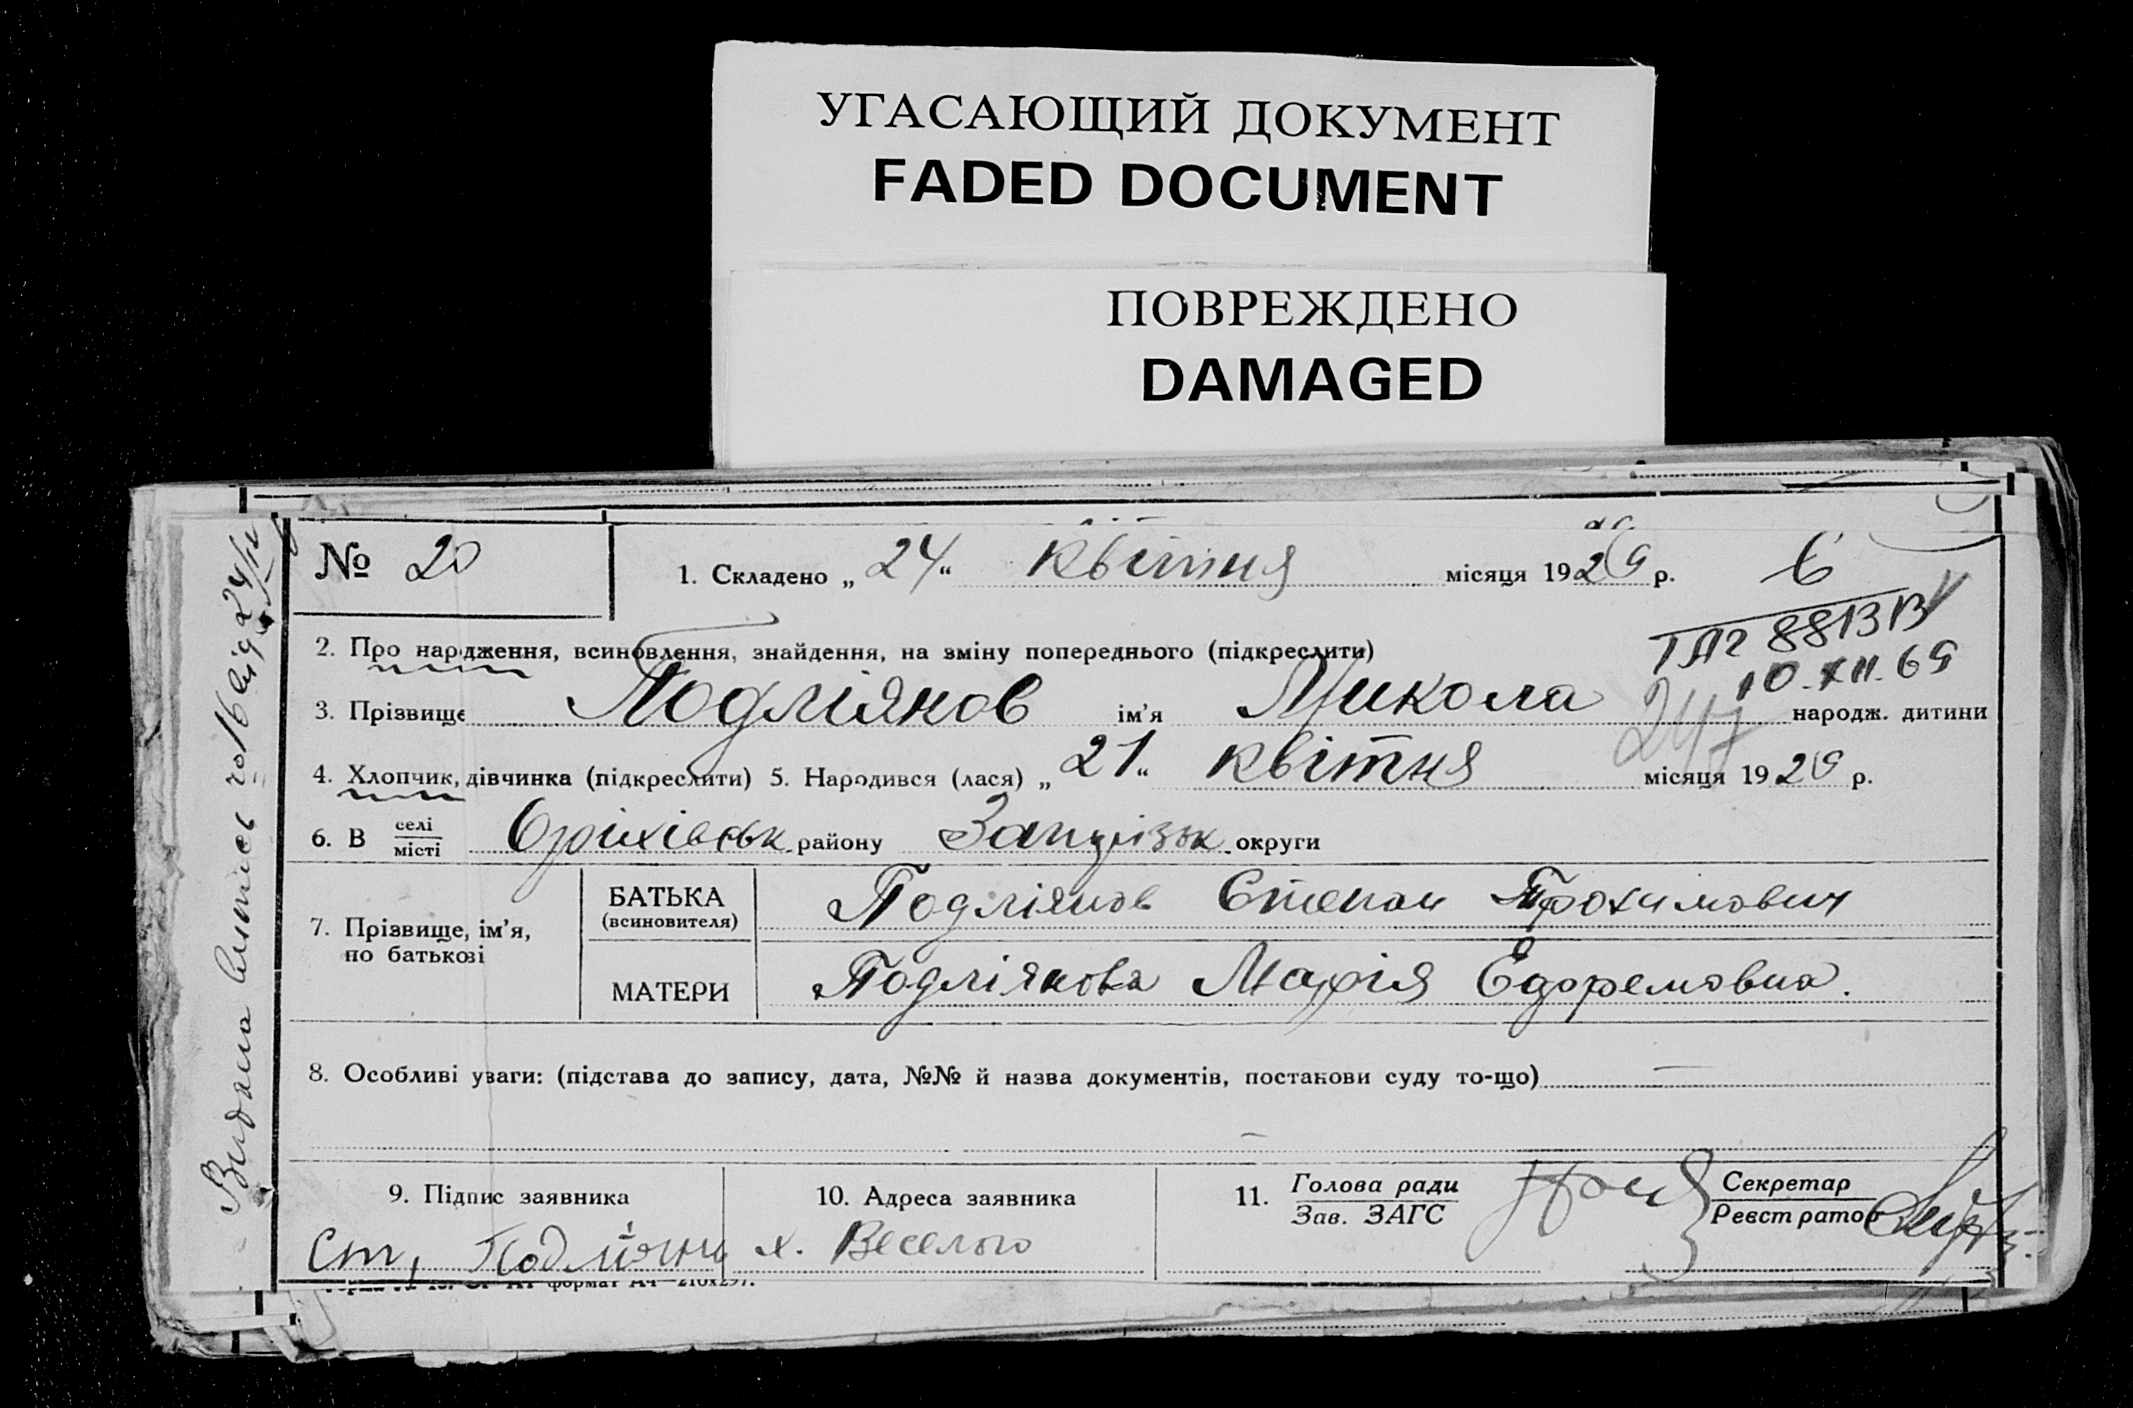 УГАСАЮЩИЙ ДОКУМЕНТ
FADED DOCUMENT
ПОВРЕЖДЕНО
DAMAGED
№ 20
1. Складено „ 24 “ квітня місяця 1929 р.
6
ТЛГ 8813 В
10.XII.69
2. Про народження, всиновлення, знайдення, на зміну попереднього (підкреслити)
3. Прізвище Подліянов ім’я Микола народж. дитини
247
4. Хлопчик, дівчинка (підкреслити) 5. Народився (лася) „ 21 “ квітня місяця 1929 р.
6. В селі місті Оріхівськ. району Запорізьк. округи
7. Прізвище, ім’я, по батькові
БАТЬКА (всиновителя) Подліянов Степан Трохимович
МАТЕРИ Подліянова Марія
8. Особливі уваги: (підстава до запису, дата, №№ й назва документів, постанови суду то-що) —
—
9. Підпис заявника
10. Адреса заявника
11. Голова ради Зав. ЗАГС
Секретар Реєстратор
Ст. х. Веселого
формат А4—210х297.
Видана